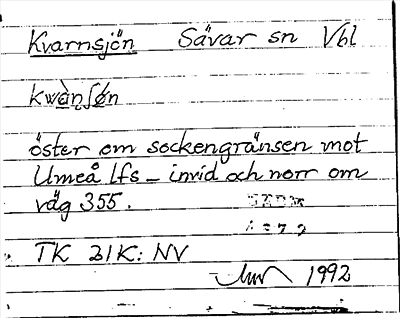 Kvarnsjön Sävar sn Vbl
kwàn̩ʃø̀n
öster om sockengränsen mot
Umeå lfs – invid och norr om
väg 355.
TK 21K: NV
1992